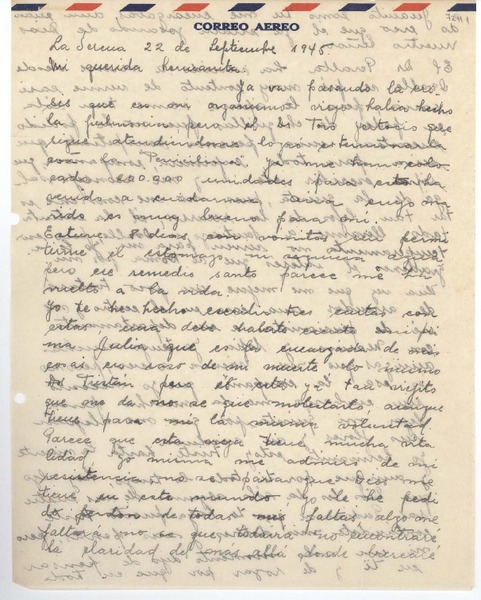 CORREO AEREO
La Serena 22 de Septiembre 1945.
Mi querida hermanita
Ya va pasando la cri-
sis que en mi organismo viejo había hecho
la pulmonía pero el Dr Toro
sigue atendiéndome lo
"Penicilina" ya me han colo-
cado 600.000 unidades para esto ha
venido a cuidarme
rido es muy bueno para mí.
Estuve 8 dias con vomitos sin permi
tirme el estomago ni siquiera agua
pero ese remedio santo parece me ha
vuelto a la vida.
Yo te he hecho escribir tres cartas con
esta una debe haberto escrito mi pri
ma Julia que es la encargada de mis
cosas en caso de mi muerte y lo mismo
Dr Tristan pero el es tan viejito
que me da no se que molestarlo, aunque
tiene para mí la misma voluntad
Parece que esta vieja tiene mucha vita
lidad. Yo misma me admiro de mi
resistencia a no se para que Dios me
tiene en este mundo le he pedi
do perdón de todas mis faltas algo me
faltará no se que todavia no encontraré
la claridad de mas allá donde ofreceré